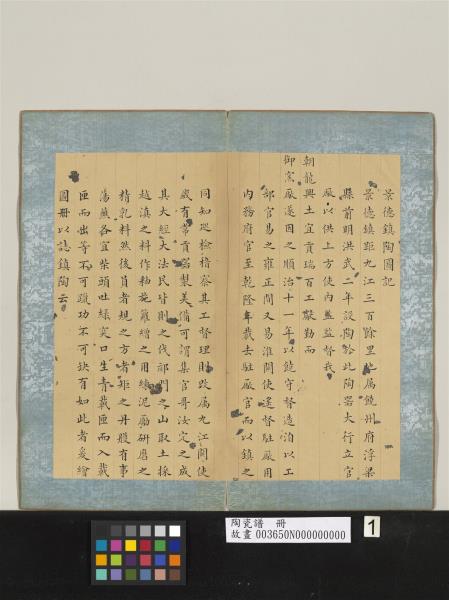 景德鎮陶圖記
景德鎮距九江三百餘里也屬饒州府浮梁
縣前明洪武二年設陶於此陶器大行立官
廠以供上方使內監督我
朝龍興土宜貢瑞百工獻勤而
御窯廠遂因之順治十一年以饒守督造洎以工
部官易之雍正間又易淮關使遙督駐廠用
內務府官至乾隆年裁去駐廠官而以鎮之
同知巡檢稽察其工督理則改屬九江關使
歲有常貢器製美備可謂集官哥汝定之成
其大經大法民皆則之伐祁門之山取土採
越滇之料作釉施繪之用練泥勵研磨之
精乳料然後員者規之方者矩之丹艧有事
蕩煎各宜柴頭吐綠窯口生青裁匣而入裁
匣而出等不可躐功不可缺有如此者爰繪
圖冊以誌鎮陶云
陶瓷譜 冊
故畫 003650N000000000
1